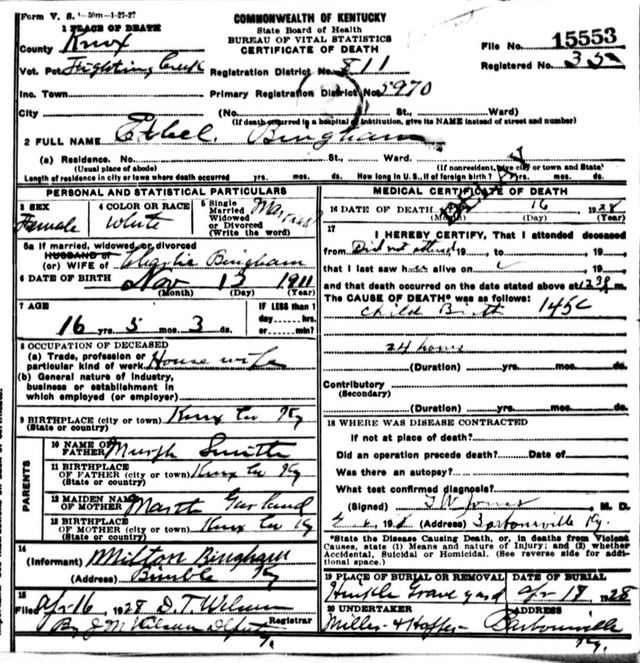 Form V. S. 1-50m-1-27-27
COMMONWEALTH OF KENTUCKY
State Board of Health
BUREAU OF VITAL STATISTICS
CERTIFICATE OF DEATH
1 PLACE OF DEATH
County Knox
File No. 15553
Vot. Pct Fighting Creek Registration District No. 811 Registered No.
Inc. Town Primary Registration District No. 5970
City (No. St., Ward)
(If death occurred in a hospital or institution, give its NAME instead of street and number)
2 FULL NAME Ethel Bingham
(a) Residence. No. St., Ward.
(Usual place of abode) (If nonresident, give city or town and State)
Length of residence in city or town where death occurred yrs. mos. ds. How long in U. S., if of foreign birth? yrs.
PERSONAL AND STATISTICAL PARTICULARS
3 SEX
Female
4 COLOR OR RACE
White
5 Single
Married
Widowed
or Divorced
(Write the word)
Married
5a If married, widowed, or divorced
HUSBAND of
(or) WIFE of Bingham
6 DATE OF BIRTH Nov 13 1911
(Month) (Day) (Year)
7 AGE
16 yrs. 5 mos. 3 ds.
IF LESS than 1
day ---- hrs.
or ---- min.
8 OCCUPATION OF DECEASED
(a) Trade, profession or
particular kind of work House wife
(b) General nature of industry,
business or establishment in
which employed (or employer)
9 BIRTHPLACE (city or town) Knox Co Ky
(State or country)
PARENTS
10 NAME OF
FATHER Smith
11 BIRTHPLACE
OF FATHER (city or town) Knox Co Ky
(State or country)
12 MAIDEN NAME
OF MOTHER Garland
13 BIRTHPLACE
OF MOTHER (city or town) Knox Co Ky
(State or country)
14
(Informant) Milton Bingham
(Address) Bimble Ky
15
Filed Apr 16 1928 D. T. Wilson
Registrar
By J M Wilson Deputy
MEDICAL CERTIFICATE OF DEATH
16 DATE OF DEATH 16 1928
(Day) (Year)
17
I HEREBY CERTIFY, That I attended deceased
from Did not attend 19 , to 19
that I last saw h alive on 19
and that death occurred on the date stated above at m.
The CAUSE OF DEATH* was as follows:
Child Birth 145c
24 hours
(Duration) yrs. mos. ds.
Contributory
(Secondary)
(Duration) yrs. mos. ds.
18 WHERE WAS DISEASE CONTRACTED
If not at place of death?
Did an operation precede death? Date of
Was there an autopsy?
What test confirmed diagnosis?
(Signed) Jones M. D.
(Address) Barbourville Ky.
*State the Disease Causing Death, or, in deaths from Violent
Causes, state (1) Means and nature of Injury; and (2) whether
Accidental, Suicidal or Homicidal. (See reverse side for addi-
tional space.)
19 PLACE OF BURIAL OR REMOVAL
Grave yard
DATE OF BURIAL
Apr 18 1928
20 UNDERTAKER
Miller &
ADDRESS
Barbourville
Ky.